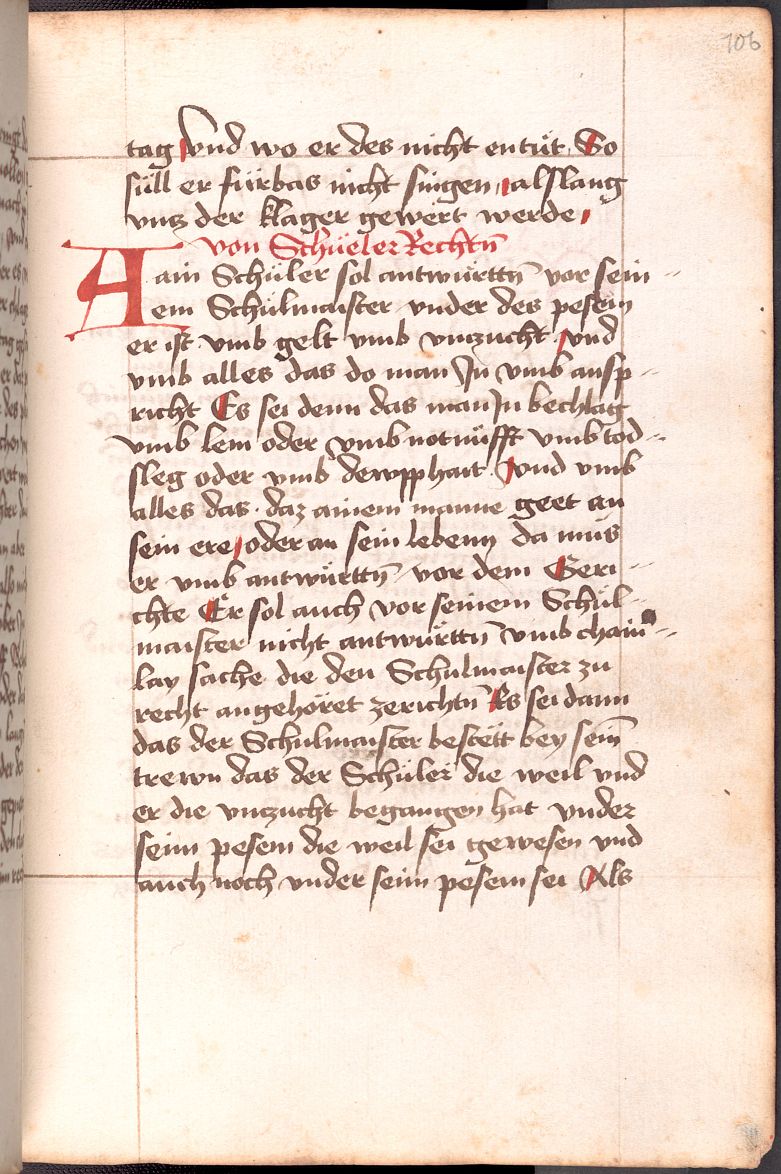 106
tag Vnd wo er des nicht entüt So
süll er fürbas nicht singen, alslang
vncz der klager gewert werde,
von Schüeler Rechtn̄
A ain Schüler sol antwürttn̄ vor sein =
em Schůlmaister vnder des pesem
er ist vmb gelt vmb vnczucht vnd
vmb alles das do man In vmb ansp =
richt Es sei denn das man In bechlag
vmb lem oder vmb notnüfft vmb tod =
sleg oder vmb dewpphait Vnd vmb
alles das daz ainem manne geet an
sein ere, oder an sein lebenn da mus
er vmb antwürttn̄ vor dem Geri =
chte Er sol auch vor seinem Schůl =
maister nicht antwürttn̄ vmb chain =
lay sache die den Schulmaister zu
recht angehöret zerichtn̄ Es sei dann
das der Schulmaister bestett bey sein̄
trewn das der Schüler die weil vnd
er die vnczucht begangen hat vnder
seim pesem die weil sei gewesen vnd
auch noch vnder seim pesem sei Als